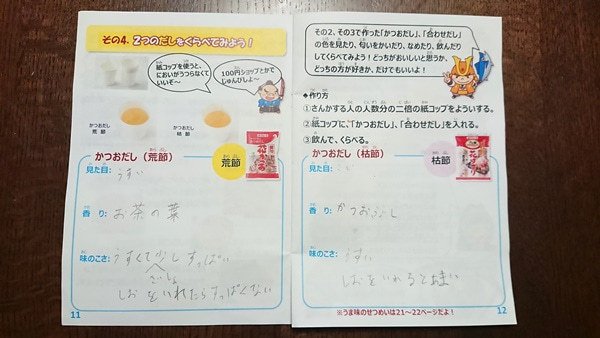 その4、2つのだしをくらべてみよう!
紙コップを使うと、
においがうつらなくて
いいぞ〜
100円ショップとかで
じゅんびしよ〜
かつおだし
荒節
かつおだし
枯節
かつおだし(荒節)
荒節
見た目:うすい
香り:お茶の葉
味のこさ:うすくて少しすっぱい
しおをいれたらすっぱくない
11
その2、その3で作った「かつおだし」、「合わせだし」
の色を見たり、匂いをかいだり、なめたり、飲んだり
してくらべてみよう!どっちがおいしいと思うか、
どっちの方が好きか、だけでもいいよ!
◆作り方
①さんかする人の人数分の二倍の紙コップをよういする。
②紙コップに、「かつおだし」、「合わせだし」を入れる。
③飲んで、くらべる。
かつおだし(枯節)
枯節
見た目:
香り:かつおぶし
味のこさ:うすい
しおをいれると
※うま味のせつめいは21〜22ページだよ!
12